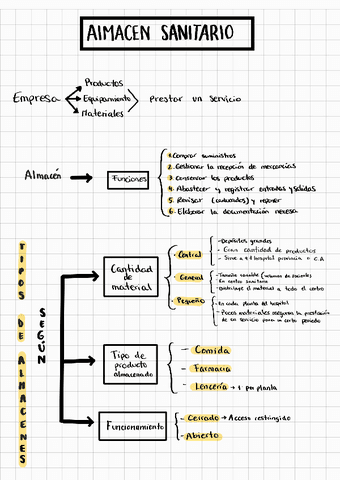 ALMACEN SANITARIO
Productos
Empresa Equipamiento Prestar un servicio
Materiales
Almacén Funciones
1. Comprar suministros
2. Gestionar la recepción de mercancías
3. Conservar los productos
4. Abastecer y registrar entradas y salidas
5. Revisar (caducados) y reponer
6. Elaborar la documentación necesa
TIPOS DE ALMACENES
SEGÚN
Cantidad de material
- Central
- Depósitos grandes
- Gran cantidad de productos
- Sirve a +1 hospital provincia o C.A
- General
- Tamaño variable (volumen de pacientes)
En centro sanitario
- Distribuye el material a todo el centro
- Pequeño
- En cada planta del hospital
- Pocos materiales aseguran la prestación
de un servicio para un corto periodo
Tipo de producto almacenado
- Comida
- Farmacia
- Lencería → 1 por planta
Funcionamiento
- Cerrado → Acceso restringido
- Abierto